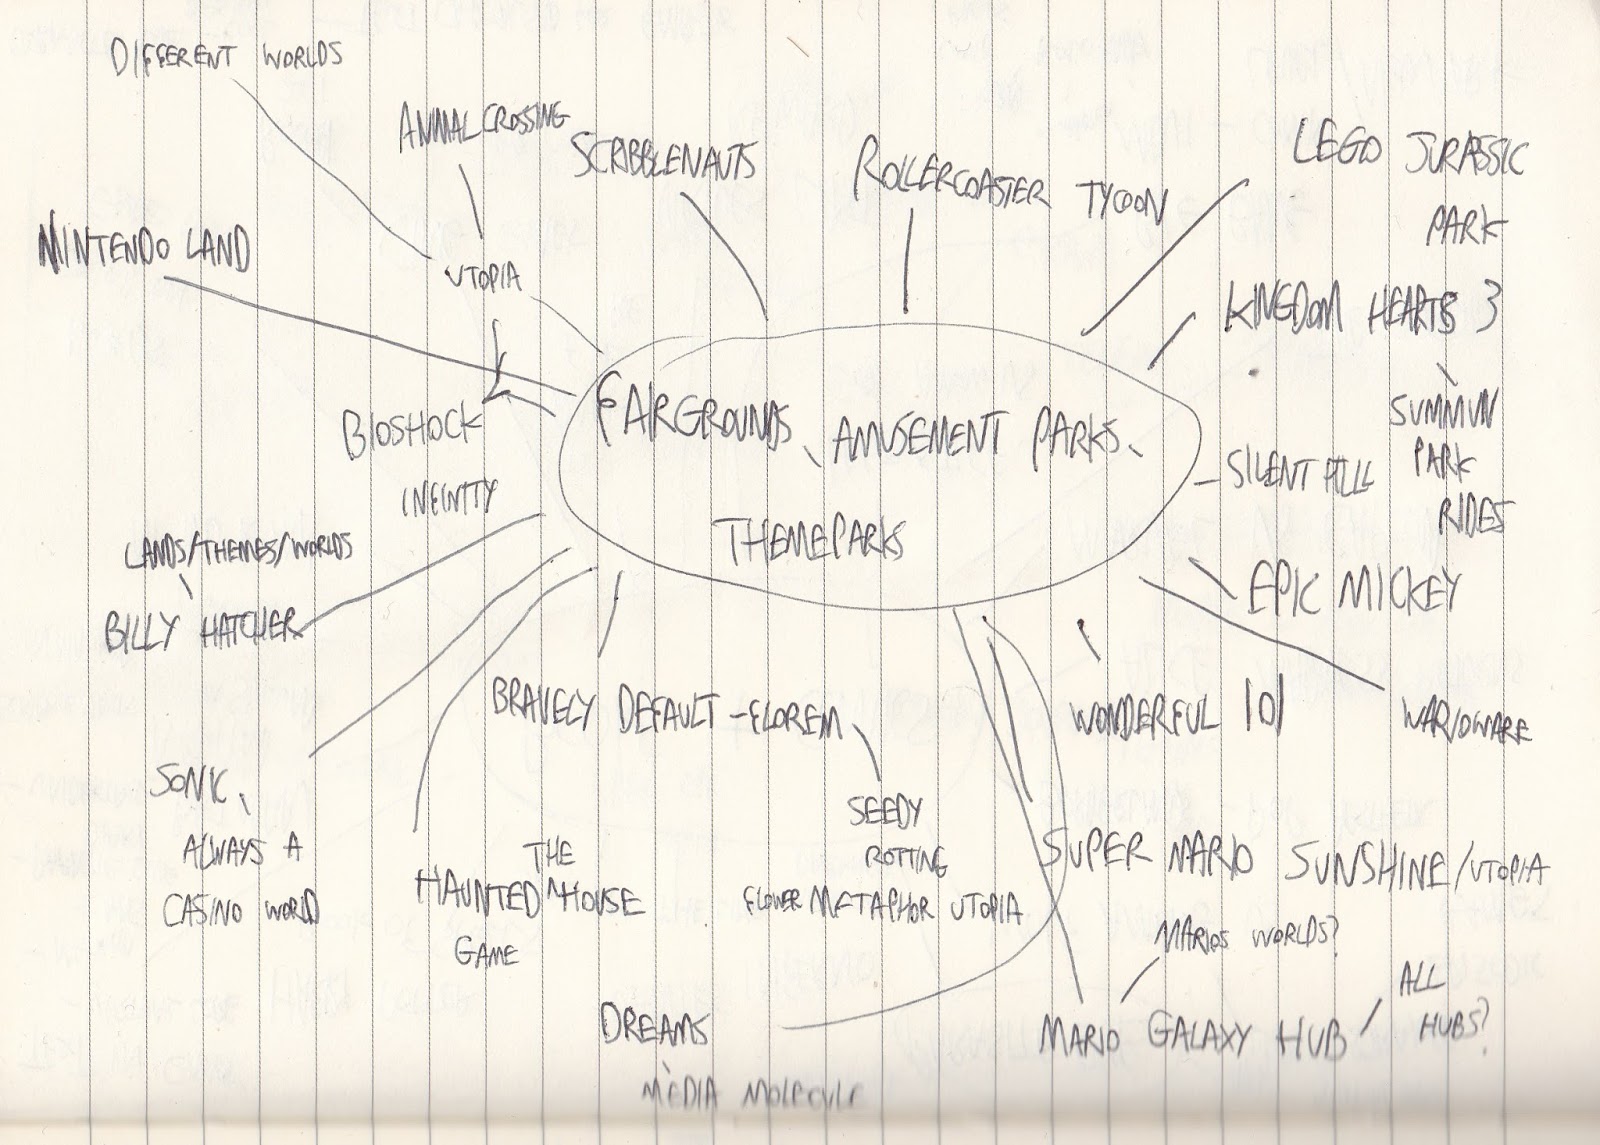 DIFFERENT WORLDS
ANIMAL CROSSING
SCRIBBLENAUTS
ROLLERCOASTER TYCOON
LEGO JURASSIC
PARK
NINTENDO LAND
UTOPIA
KINGDOM HEARTS 3
SUMMUN
PARK
RIDES
BIOSHOCK
INFINITY
FAIRGROUNDS, AMUSEMENT PARKS,
THEMEPARKS
SILENT HILL
LANDS/THEMES/WORLDS
BILLY HATCHER
EPIC MICKEY
BRAVELY DEFAULT - FLOREM
SEEDY
ROTTING
FLOWER METAPHOR UTOPIA
WONDERFUL 101
WARIOWARE
SONIC,
ALWAYS A
CASINO WORLD
THE
HAUNTED HOUSE
GAME
SUPER MARIO SUNSHINE/UTOPIA
MARIOS WORLDS?
MARIO GALAXY HUB /
ALL
HUBS?
DREAMS
MEDIA MOLECULE